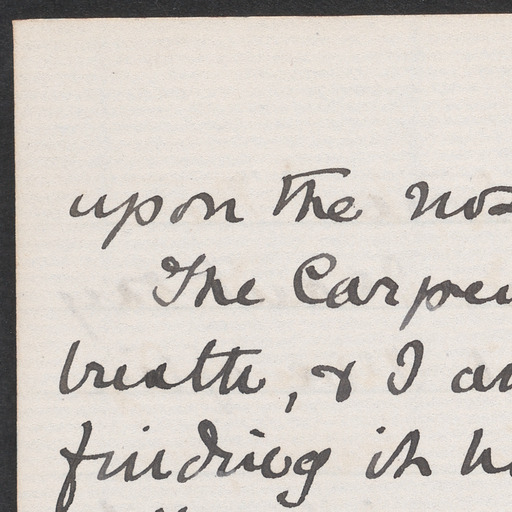 upon the no
The Carpen
breath, & I am
finding it h